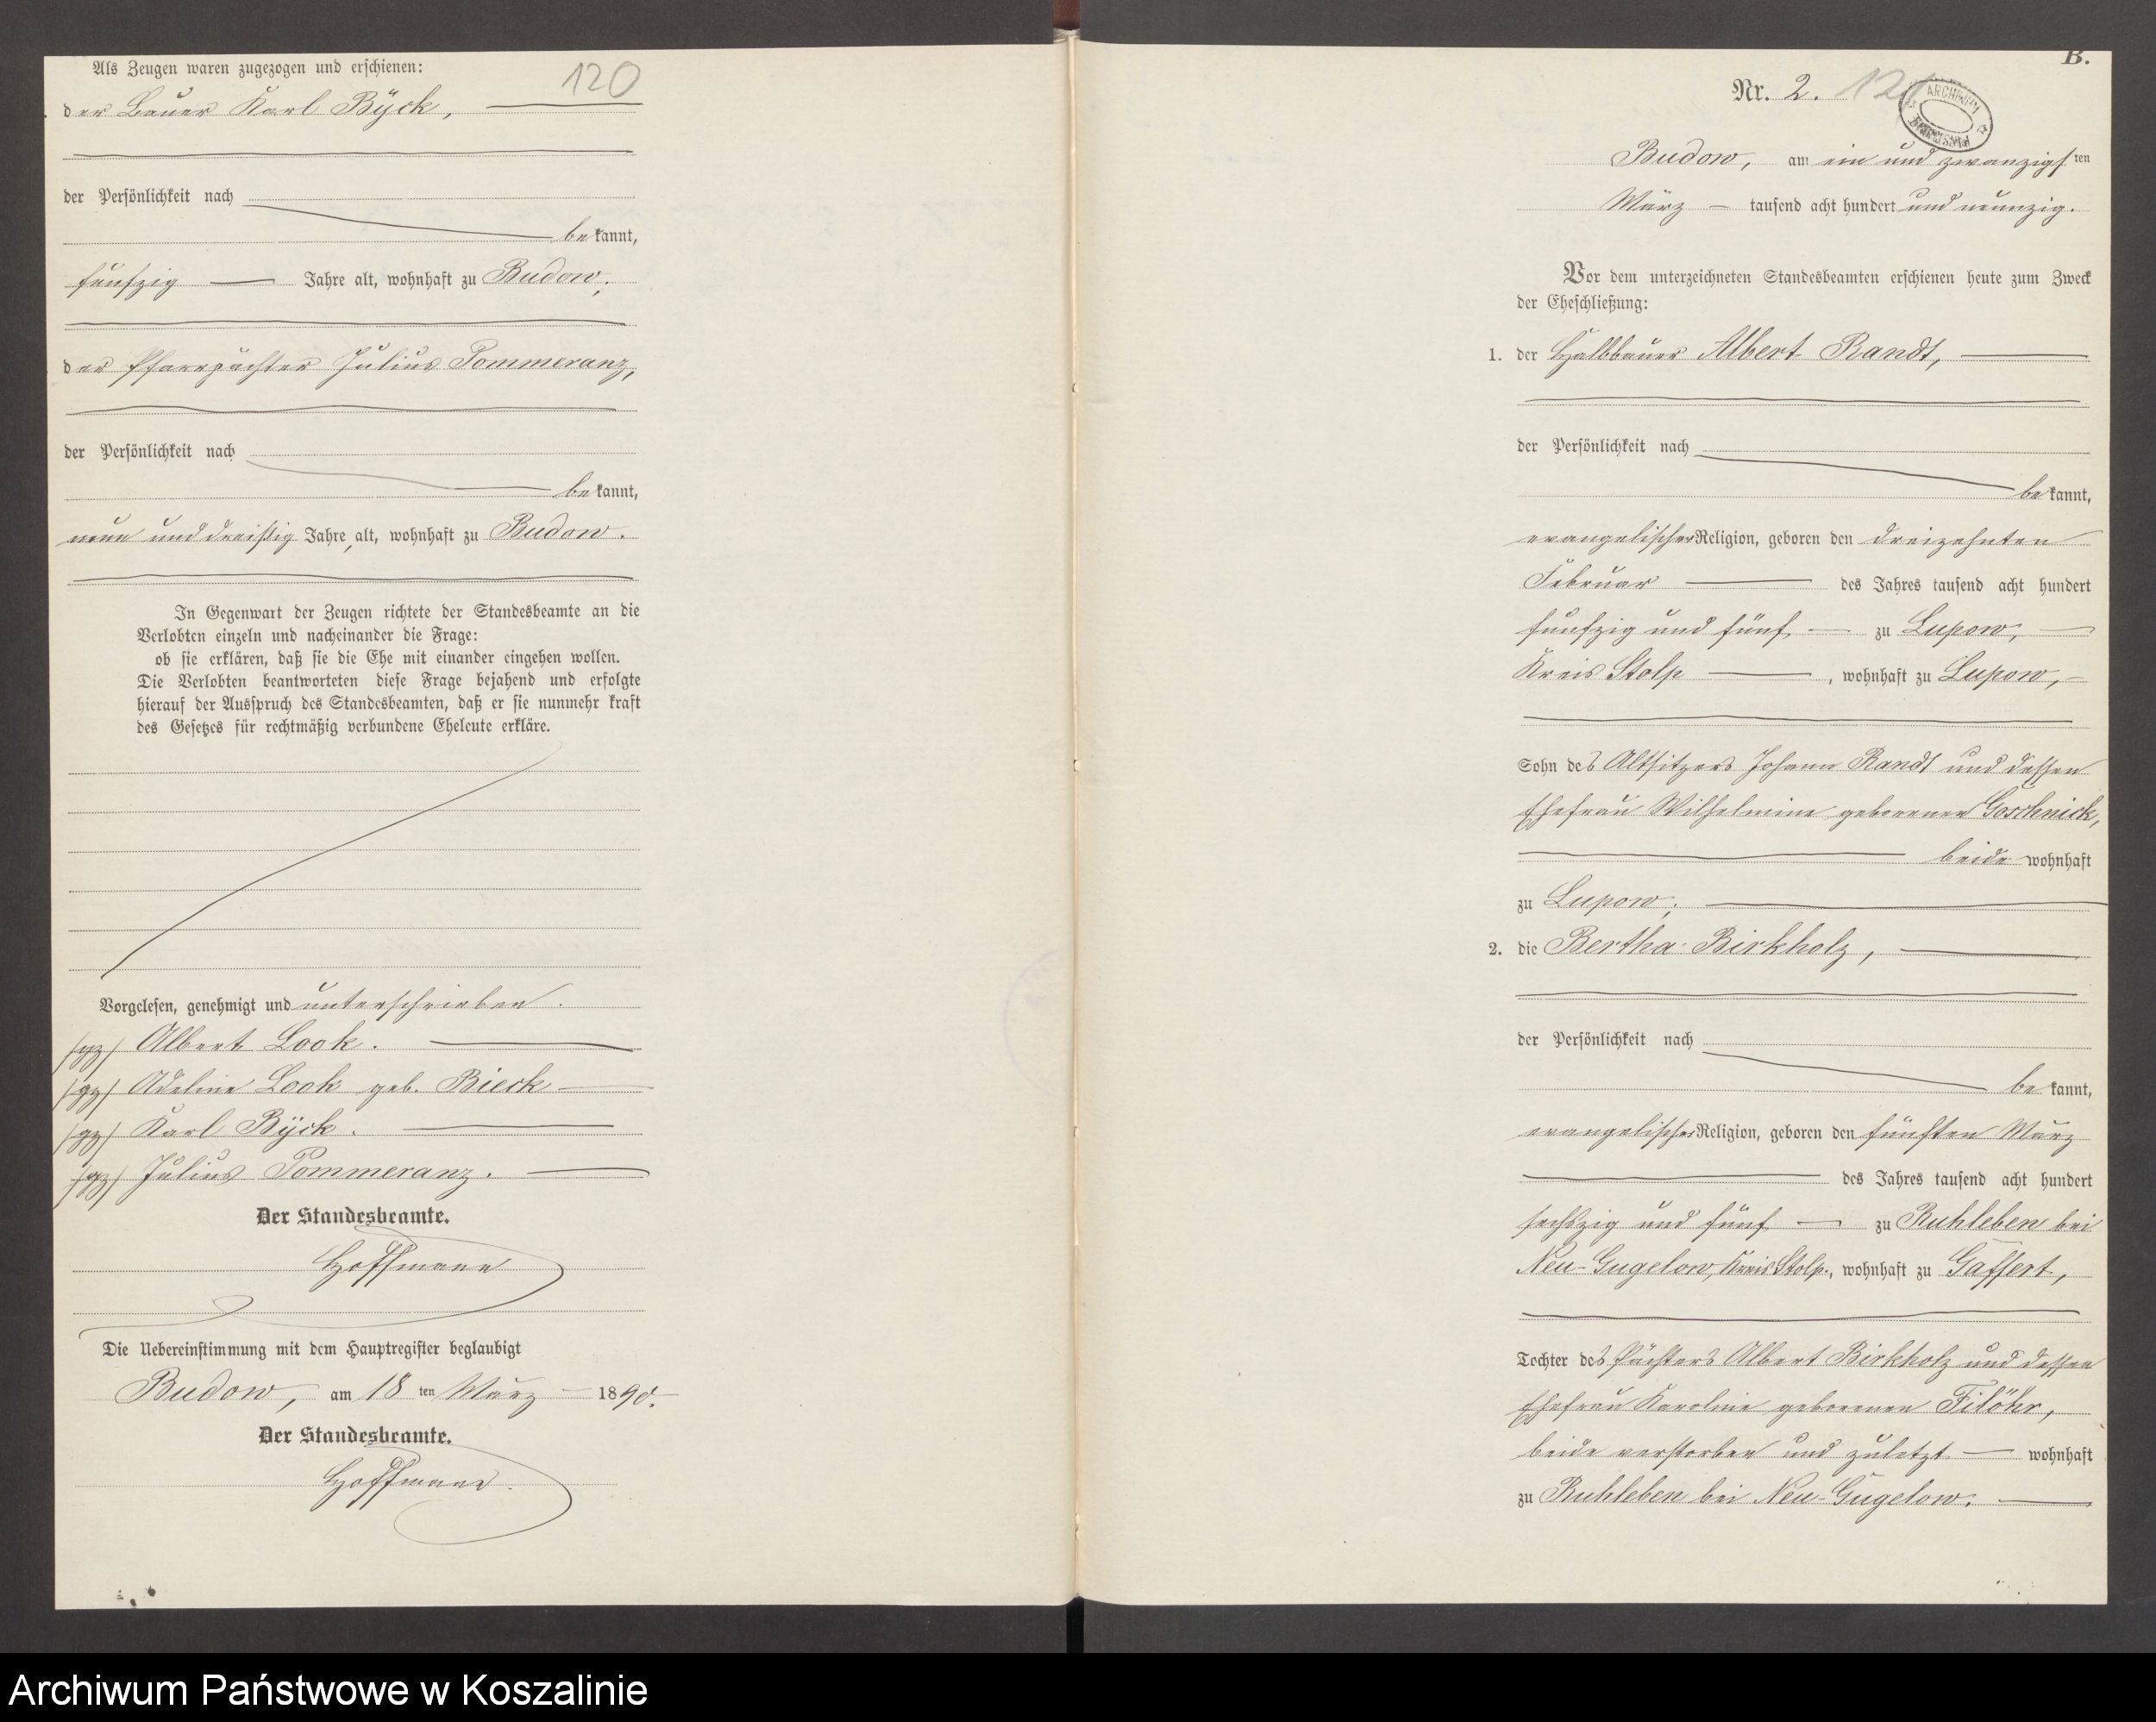 Als Zeugen waren zugezogen und erschienen:
120
der Bauer Karl Bÿck,
der Persönlichkeit nach
bekannt,
fünfzig Jahre alt, wohnhaft zu Budow;
der Pfarrpächter Julius Pommeranz,
der Persönlichkeit nach
bekannt,
neun und dreißig Jahre alt, wohnhaft zu Budow.
In Gegenwart der Zeugen richtete der Standesbeamte an die
Verlobten einzeln und nacheinander die Frage:
ob sie erklären, daß sie die Ehe mit einander eingehen wollen.
Die Verlobten beantworteten diese Frage bejahend und erfolgte
hierauf der Ausspruch des Standesbeamten, daß er sie nunmehr kraft
des Gesetzes für rechtmäßig verbundene Eheleute erkläre.
Vorgelesen, genehmigt und unterschrieben.
/gz/ Albert Look.
/gz/ Adeline Look geb. Bieck
/gz/ Karl Bÿck.
/gz/ Julius Pommeranz.
Der Standesbeamte.
Hoffmann
Die Uebereinstimmung mit dem Hauptregister beglaubigt
Budow, am 18 ten März 1890.
Der Standesbeamte.
Hoffmann.
B.
Nr. 2.
ARCHIWUM
Budow, am ein und zwanzigsten
März tausend acht hundert und neunzig.
Vor dem unterzeichneten Standesbeamten erschienen heute zum Zweck
der Eheschließung:
1. der Halbbauer Albert Randt,
der Persönlichkeit nach
bekannt,
evangelischer Religion, geboren den dreizehnten
Februar des Jahres tausend acht hundert
fünfzig und fünf zu Lupow,
Kreis Stolp, wohnhaft zu Lupow,
Sohn des Altsitzers Johann Randt und dessen
Ehefrau Wilhelmine geborenen Goschnick,
beide wohnhaft
zu Lupow;
2. die Bertha Birkholz,
der Persönlichkeit nach
bekannt,
evangelischer Religion, geboren den fünften März
des Jahres tausend acht hundert
sechszig und fünf zu Ruhleben bei
Neu-Gugelow, Kreis Stolp, wohnhaft zu Gaffert,
Tochter des Pächters Albert Birkholz und dessen
Ehefrau Karoline geborenen Filöhr,
beide verstorben und zuletzt wohnhaft
zu Ruhleben bei Neu-Gugelow.
Archiwum Państwowe w Koszalinie